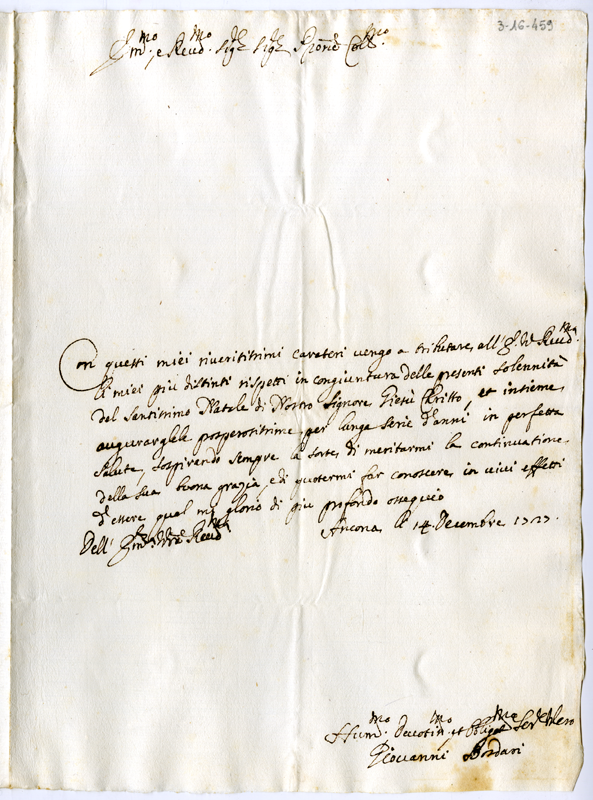 3-16-459
Em.mo e Reud.mo Sig.r Sig.r Pron.e Coll.mo
Con questi miei riueritissimi carateri uengo a tributare all' E. V. Reud.ma
li miei più distinti rispetti in congiuntura delle presenti solennità
del Santissimo Natale di Nostro Signore Giesù Christo, et insieme
augurargliele prosperosissime per lunga serie d'anni in perfetta
salute, sospirando sempre la sorte di meritarmi la continuatione
della sua buona grazia, e di potermi far conoscere in uiui effetti
d'essere qual mi glorio di più profondo ossequio
Dell' Em.za V.ra Reud.ma
Ancona li 14 Decembre 1727.
Hum.mo Deuotis.mo et Oblig.mo Ser.re Vero
Giouanni Bordari